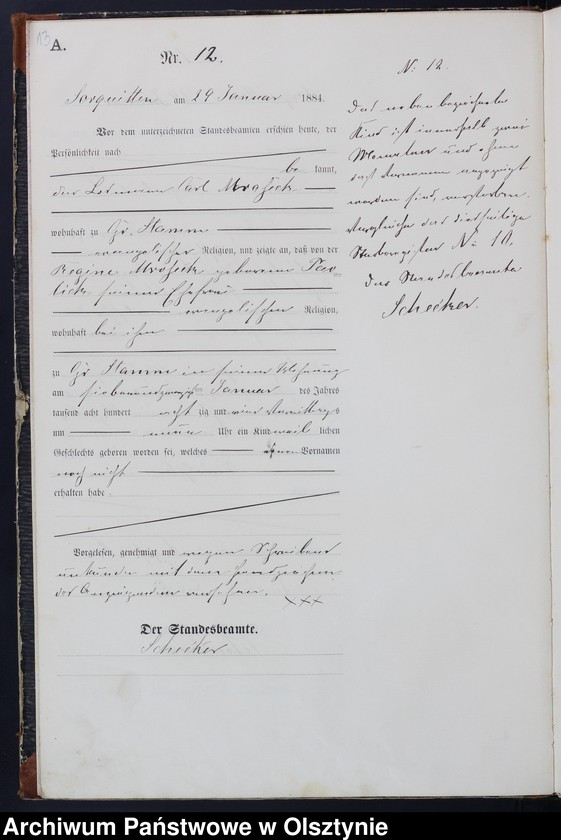 13
A.
Nr. 12.
Sorquitten am 29 Januar 1884.
Vor dem unterzeichneten Standesbeamten erschien heute, der
Persönlichkeit nach
be kannt,
der Losmann Carl Mroseck
wohnhaft zu Gr. Stamm
evangelischer Religion, und zeigte an, daß von der
Regine Mroseck geborenen Paw-
lick seiner Ehefrau
evangelischen Religion,
wohnhaft bei ihm
zu Gr Stamm in seiner Wohnung
am siebenundzwanzigsten Januar des Jahres
tausend acht hundert acht zig und vier Vormittags
um neun Uhr ein Kind weib lichen
Geschlechts geboren worden sei, welches Vornamen
noch nicht
erhalten habe
Vorgelesen, genehmigt und wegen Schreibens
unkunde mit dem Handzeichen
des Anzeigenden versehen.
XXX
Der Standesbeamte.
Schecker
N: 12.
Das neben bezeichnete
Kind ist innerhalb zwei
Monaten und ohne
daß Vornamen angezeigt
worden sind, verstorben.
Vergleiche das diesseitige
Sterberegister N: 10.
Der Standesbeamte
Schecker.
Archiwum Państwowe w Olsztynie